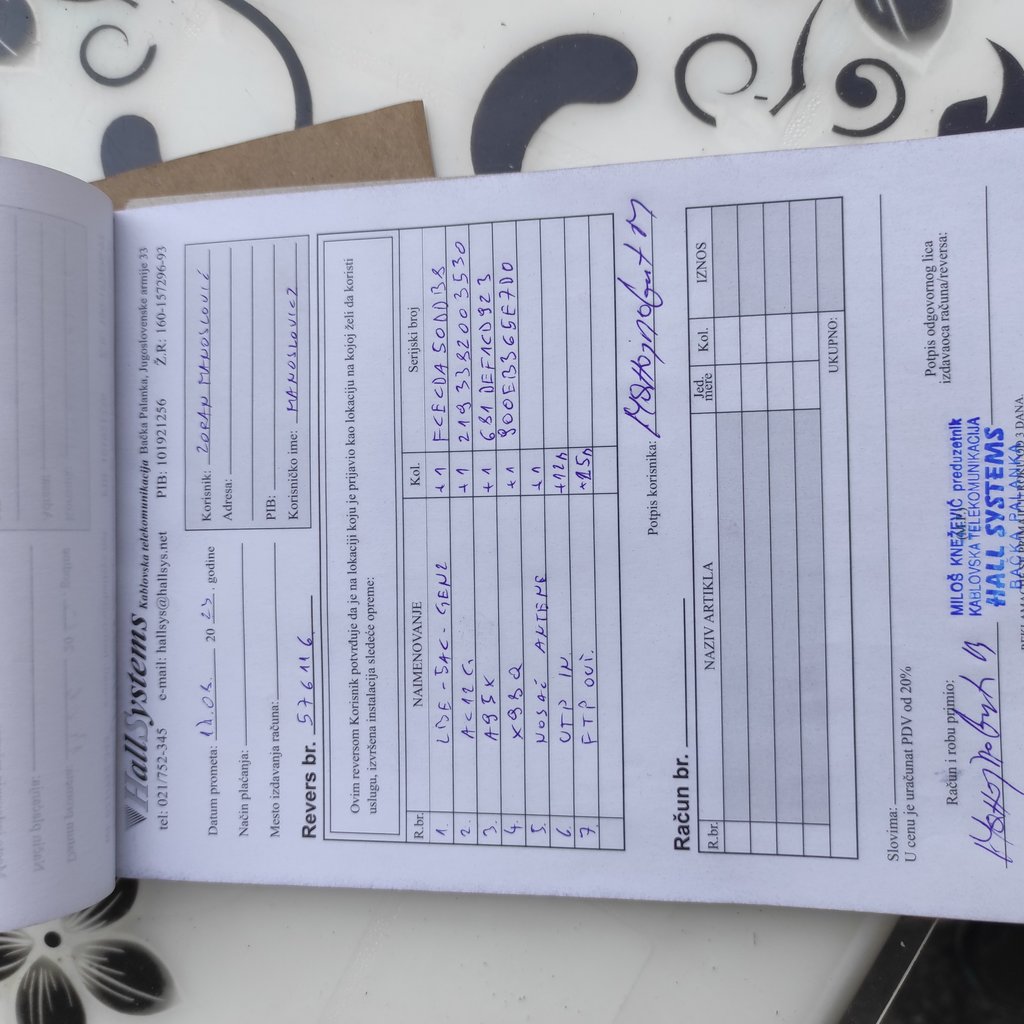 HallSystems Kablovska telekomunikacija Bačka Palanka, Jugoslovenske armije 33
tel: 021/752-345 e-mail: hallsys@hallsys.net PIB: 101921256 Ž.R: 160-157296-93
Datum prometa: 11.08. 20 23. godine
Način plaćanja:
Mesto izdavanja računa:
Korisnik: ZORAN MANOSLOVIĆ
Adresa:
PIB:
Korisničko ime: MANOSLOVICZ
Revers br. 576116
Ovim reversom Korisnik potvrđuje da je na lokaciji koju je prijavio kao lokaciju na kojoj želi da koristi
uslugu, izvršena instalacija sledeće opreme:
R.br. NAIMENOVANJE Kol. Serijski broj
1. LBE-5AC-GEN2 +1 FCECDA50DDB8
2. AC12G +1 21933382003530
3. A95X +1 681DEF1CD923
4. X98Q +1 900EB365E7D0
5. NOSAČ ANTENE +1
6. UTP IN +12m
7. FTP OUT.
Potpis korisnika:
Račun br.
R.br. NAZIV ARTIKLA Jed. mere Kol. IZNOS
UKUPNO:
Slovima:
U cenu je uračunat PDV od 20%
Račun i robu primio:
Potpis odgovornog lica
izdavaoca računa/reversa:
MILOŠ KNEŽEVIĆ preduzetnik
KABLOVSKA TELEKOMUNIKACIJA
HALL SYSTEMS
BAČKA PALANKA